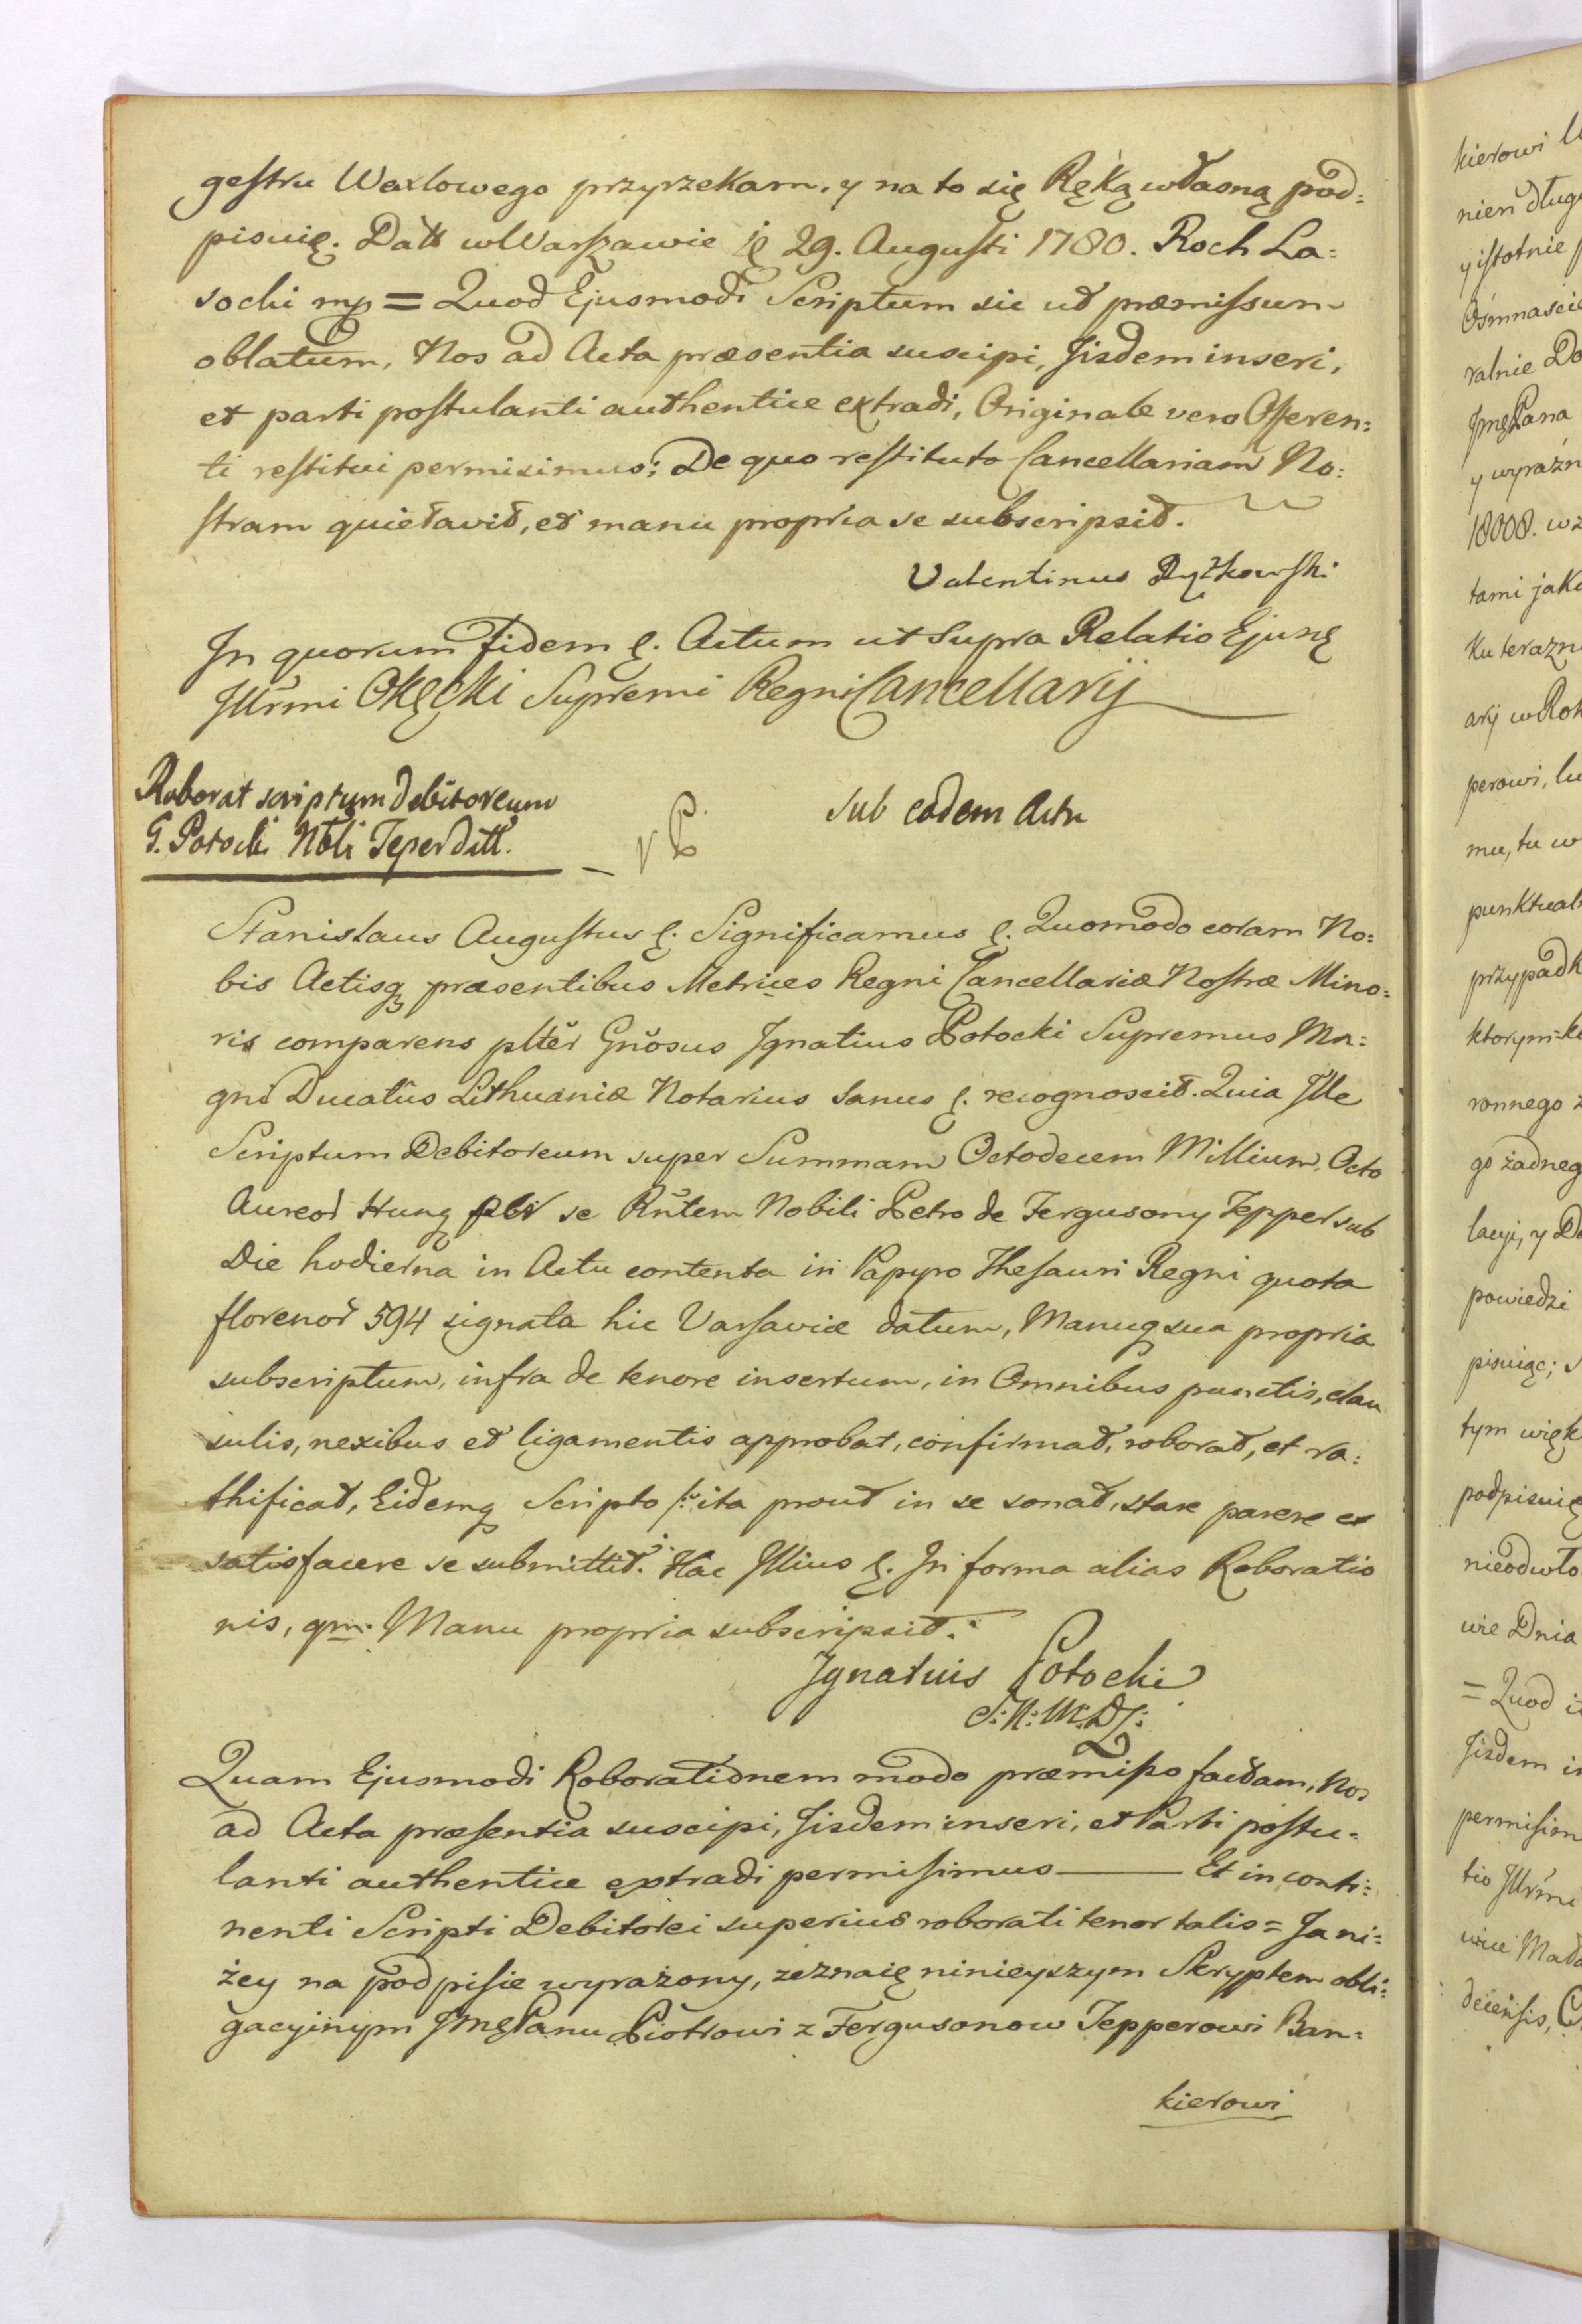 gestru Wexlowego przyrzekam, y na to się Ręką własną pod:
pisuię. Datt w Warszawie  29. Augusti 1780. Roch La:
socki mp = Quod Ejusmodi Scriptum sic ut præmissum
oblatum, Nos ad Acta præsentia suscipi, Iisdem inseri,
et parti postulanti authentice extradi, Originale vero Offeren:
ti restitui permisimus; De quo restituto Cancellariam No:
stram quietavit, et manu propria se subscripsit.
Valentinus Ryżkowski
In quorum Fidem ę. Actum ut Supra Relatio Ejusq
Illrmi Okęcki Supremi Regni Cancellarij
Roborat scriptum debitoreum
G. Potocki Nbli Teper ditt.
Sub eodem Actu
Stanislaus Augustus ę. Significamus ę. Quomodo coram No:
bis Actisq præsentibus Metrices Regni Cancellariæ Nostræ Mino:
ris comparens plter Gnosus Ignatius Potocki Supremus Ma:
gni Ducatus Lithuaniæ Notarius Sanus ę. recognoscit. Quia Ille
Scriptum Debitoreum super Summam Octodecem Millium Octo
Aureor Hung per se Rntem Nobili Petro de Fergusony Tepper sub
Die hodierna in Actu contenta in Papyro Thesauri Regni quota
florenor 594 signata hic Varsaviæ datum, Manuq sua propria
subscriptum, infra de tenore insertum, in Omnibus punctis, clau
sulis, nexibus et ligamentis approbat, confirmat, roborat, et ra:
thificat, Eidemq Scripto /: ita prout in se sonat, stare parere et
satisfacere se submittit. Hac Illius ę. In forma alias Roboratio
nis, qm. Manu propria subscripsit.
Ignatius Potocki
P: N: W: X: L:
Quam Ejusmodi Roborationem modo præmisso factam, Nos
ad Acta præsentia suscipi, Iisdem inseri, et Parti postu:
lanti authentice extradi permisimus ——— Et in conti:
nenti Scripti Debitorei superius roborati tenor talis = Ja ni:
żey na podpisie wyrażony, zeznaię ninieyszym Skryptem obli:
gacyinym Jmę Panu Piotrowi z Fergusonow Tepperowi Ban:
kierowi